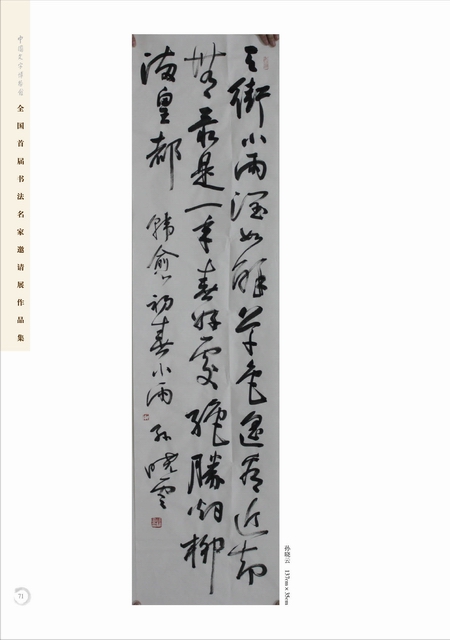 中国文字博物馆
全国首届书法名家邀请展作品集
天街小雨潤如酥草色遥看近却
無最是一年春好處絕勝烟柳
滿皇都 韓愈初春小雨 孫曉雲
孙晓云 137cm×35cm
71